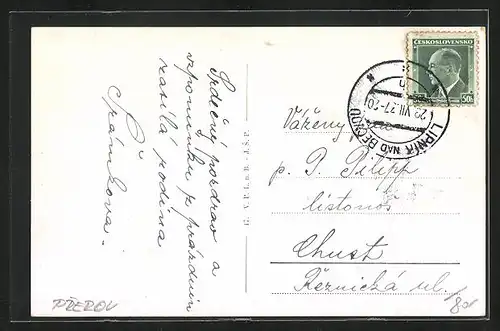 Srdečný pozdrav a
vzpomínku z prázdnin
zasílá rodina
ČESKOSLOVENSKO
50h
LIPNÍK NAD BEČVOU
Vážený pan
p. J. Filipp
listonoš
Chust
Řeznická ul.
PŘEROV
80